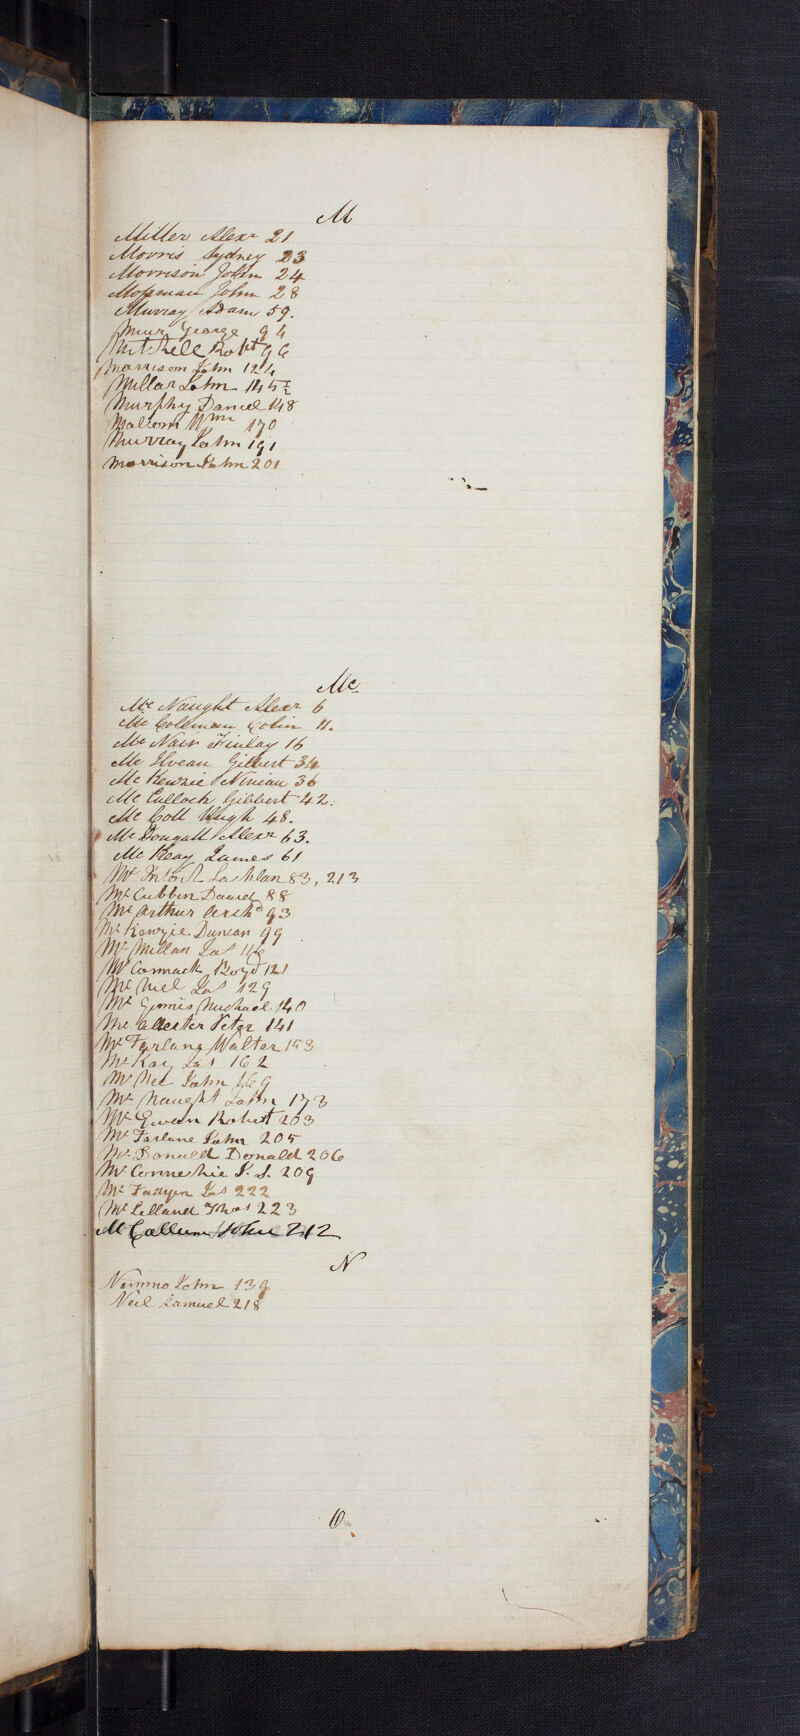 M
Miller Alexr 21
Morris Sydney 23
Morrison John 24
Mossman John 28
Murray Adam 59.
Muir George 94
Mitchell Robt 96
Morrison John 124
Millar John 145½
Murphy Daniel 148
Malcom Wm 170
Murray John 191
Morrison John 201
Mc
Mc Naught Alexr 6
Mc Coleman Colin 11.
Mc Nair Finlay 16
Mc Ilveau Gilbert 34
Mc Kenzie Ninian 36
Mc Culloch Gibbert 42.
Mc Coll Hugh 48.
Mc Dougall Alexr 63.
Mc Keay James 61
Mc Intosh Lachlan 83, 213
Mc Cubbin David 88
Mc Arthur Archd 93
Mc Kenzie Duncan 99
Mc Millan Jas 116
Mc Cormack Boyd 121
Mc Niel Jas 129
Mc Ginnis Michael 140
Mc Allester Peter 141
Mc Farlane Walter 153
Mc Kay Jas 162
Mc Nee John 169
Mc Naught John 173
Mc Ewen Robert 203
Mc Farlane John 205
Mc Donald Donald 206
Mc Connechie J. S. 209
Mc Fadyen Jas 222
Mc Lelland Thos 223
McCallum John 212
N
Nimmo John 139
Neil Samuel 218
O